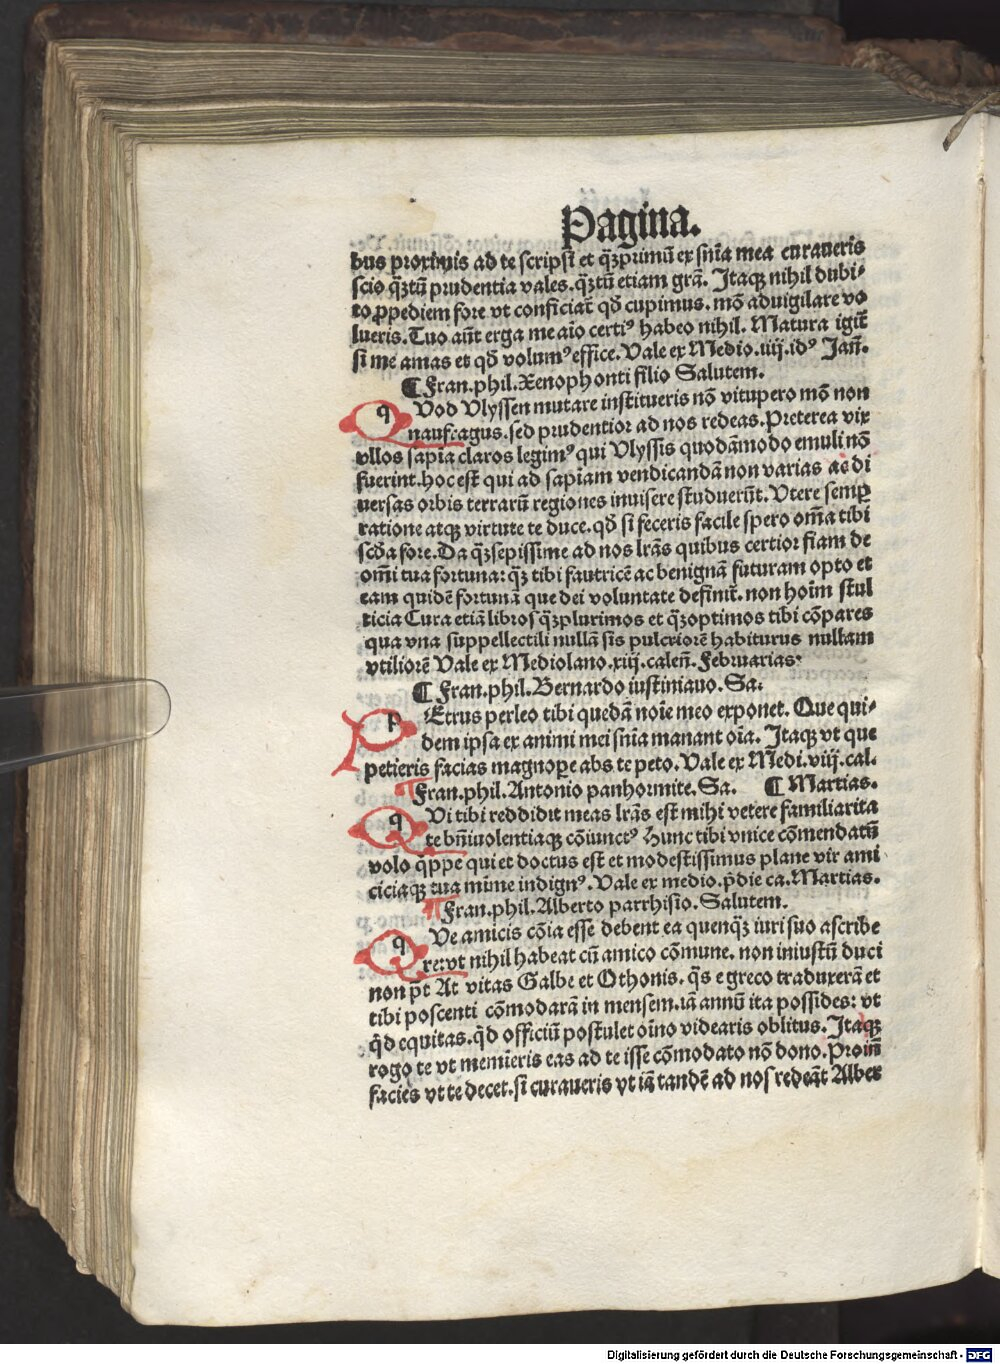 Pagina.
bus proximis ad te scripsi et q̄ꝫprimū ex sn̄ia mea curaueris
scio q̄ꝫtū prudentia vales. q̄ꝫtū etiam grā. Itaqꝫ nihil dubi⸗
to ꝓpediem fore vt conficiat̄ qd̄ cupimus. mō aduigilare vo
lueris. Tuo aūt erga me aīo certiꝰ habeo nihil. Matura igit̄
si me amas et qd̄ volumꝰ effice. Vale ex Medio. iiij. idꝰ Jan̄.
¶ Fran. phil. Xenophonti filio Salutem.
q Vod Vlyssen mutare institueris nō vitupero mō non
naufragus. sed prudentior ad nos redeas. Preterea vix
vllos sapīa claros legimꝰ qui Vlyssis quodāmodo emuli nō
fuerint. hoc est qui ad sapīam vendicandā non varias ac di
uersas orbis terrarū regiones inuisere studuerūt. Vtere semꝑ
ratione atqꝫ virtute te duce. qd̄ si feceris facile spero om̄a tibi
scd̄a fore. Da q̄ꝫsepissime ad nos lr̄as quibus certior fiam de
om̄i tua fortuna: q̄ꝫ tibi fautricē ac benignā futuram opto et
eam quidē fortunā que dei voluntate definit̄. non hoīm stul
ticia Cura etiā libros q̄ꝫplurimos et q̄ꝫoptimos tibi cōpares
qua vna suppellectili nullā sis pulcriorē habiturus nullam
vtiliorē Vale ex Mediolano. xiij. calen̄. Februarias:
¶ Fran. phil. Bernardo iustiniano. Sa.
p Etrus perleo tibi quedā noīe meo exponet. Que qui⸗
dem ipsa ex animi mei sn̄ia manant oīa. Itaqꝫ vt que
petieris facias magnopere abs te peto. Vale ex Medi. viij. cal.
Fran. phil. Antonio panhormite. Sa. ¶ Martias.
q Vi tibi reddidit meas lr̄as est mihi vetere familiarita
te bn̄iuolentiaqꝫ cōiunctꝰ Hunc tibi vnice cōmendatū
volo q̄ppe qui et doctus est et modestissimus plane vir ami
ciciaqꝫ tua mīme indignꝰ. Vale ex medio. p̄die ca. Martias.
¶ Fran. phil. Alberto parrhisio. Salutem.
q Ve amicis cōia esse debent ea quenqꝫ iuri suo ascribe
re: vt nihil habeat cū amico cōmune. non iniustū duci
non pt̄ At vitas Galbe et Othonis. q̄s e greco traduxerā et
tibi poscenti cōmodarā in mensem. iā annū ita possides: vt
q̄d equitas. q̄d officiū postulet oīno videaris oblitus. Itaqꝫ
rogo te vt memīeris eas ad te isse cōmodato nō dono. Proin̄
facies vt te decet. si curaueris vt iā tandē ad nos redeāt Alber
Digitalisierung gefördert durch die Deutsche Forschungsgemeinschaft - DFG